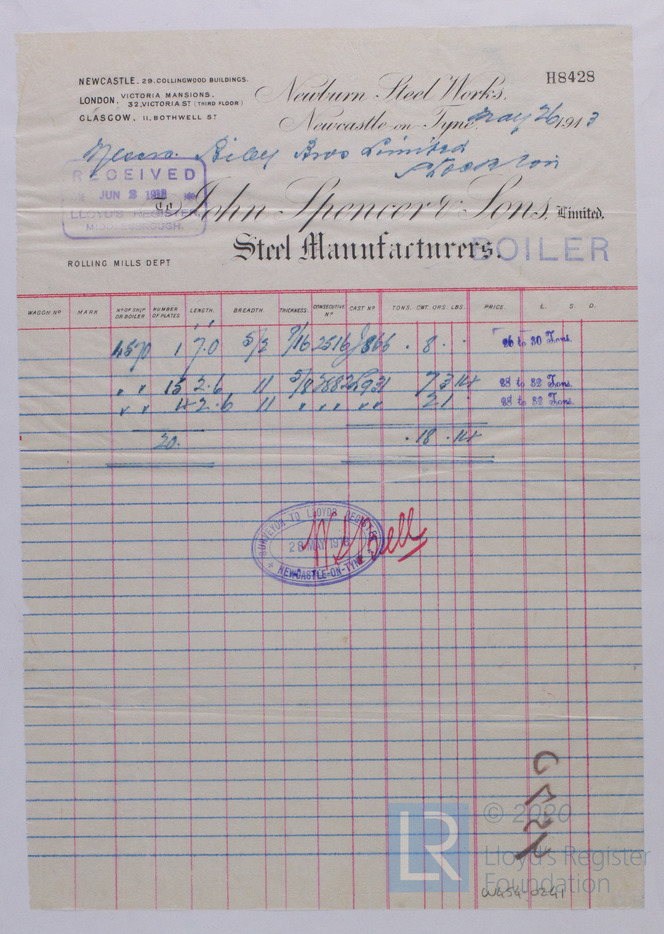 NEWCASTLE. 29. COLLINGWOOD BUILDINGS.
LONDON. VICTORIA MANSIONS.
32, VICTORIA ST (THIRD FLOOR)
GLASGOW. 11, BOTHWELL ST
Newburn Steel Works.
H8428
Newcastle-on-Tyne May 26 1913
Messrs. Riley Bros Limited
Stockton
RECEIVED
JUN 2 1913
LLOYD'S REGISTER,
MIDDLESBROUGH.
To John Spencer & Sons, Limited.
Steel Manufacturers.
BOILER
ROLLING MILLS DEPT
WAGON No MARK No OF SHIP OR BOILER NUMBER OF PLATES LENGTH. BREADTH THICKNESS CONSECUTIVE No CAST No TONS. CWT. QRS. LBS. PRICE £. S. D.
4570 1 7.0 5/2 9/16 2516 . 8 . . 26 to 30 Tons.
" " 15 2.6 11 5/8 7 3 14 28 to 32 Tons.
" " 4 2.6 11 " " " " 2 1 28 to 32 Tons.
20. . 18 . 14
SURVEYOR TO LLOYDS REGISTER
28 MAY 1913
NEWCASTLE-ON-TYNE
LR
© 2020
Lloyd's Register
Foundation
W454-0241